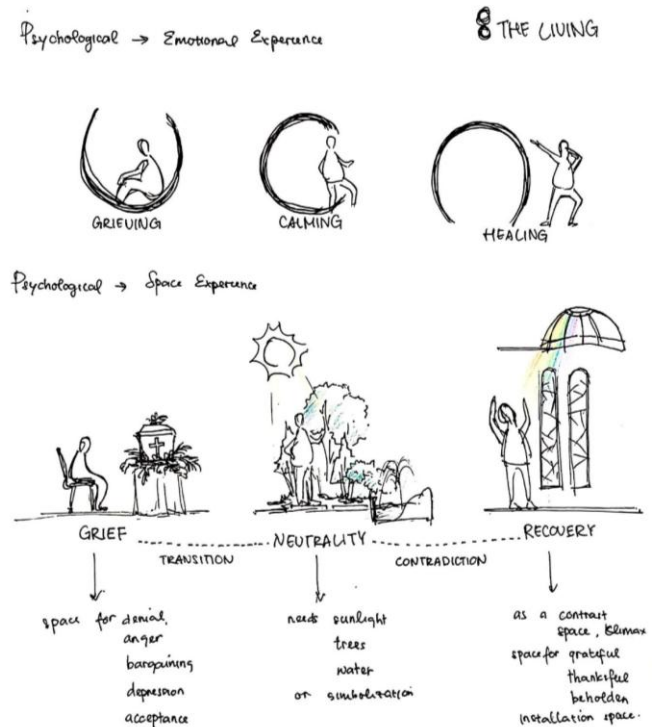 Psychological → Emotional Experience
8 THE LIVING
GRIEVING
CALMING
HEALING
Psychological → Space Experience
GRIEF
TRANSITION
NEUTRALITY
CONTRADICTION
RECOVERY
space for denial,
anger
bargaining
depression
acceptance
needs sunlight
trees
water
or simbolization
as a contrast
space, klimax
space for grateful
thankful
beholden
installation space.